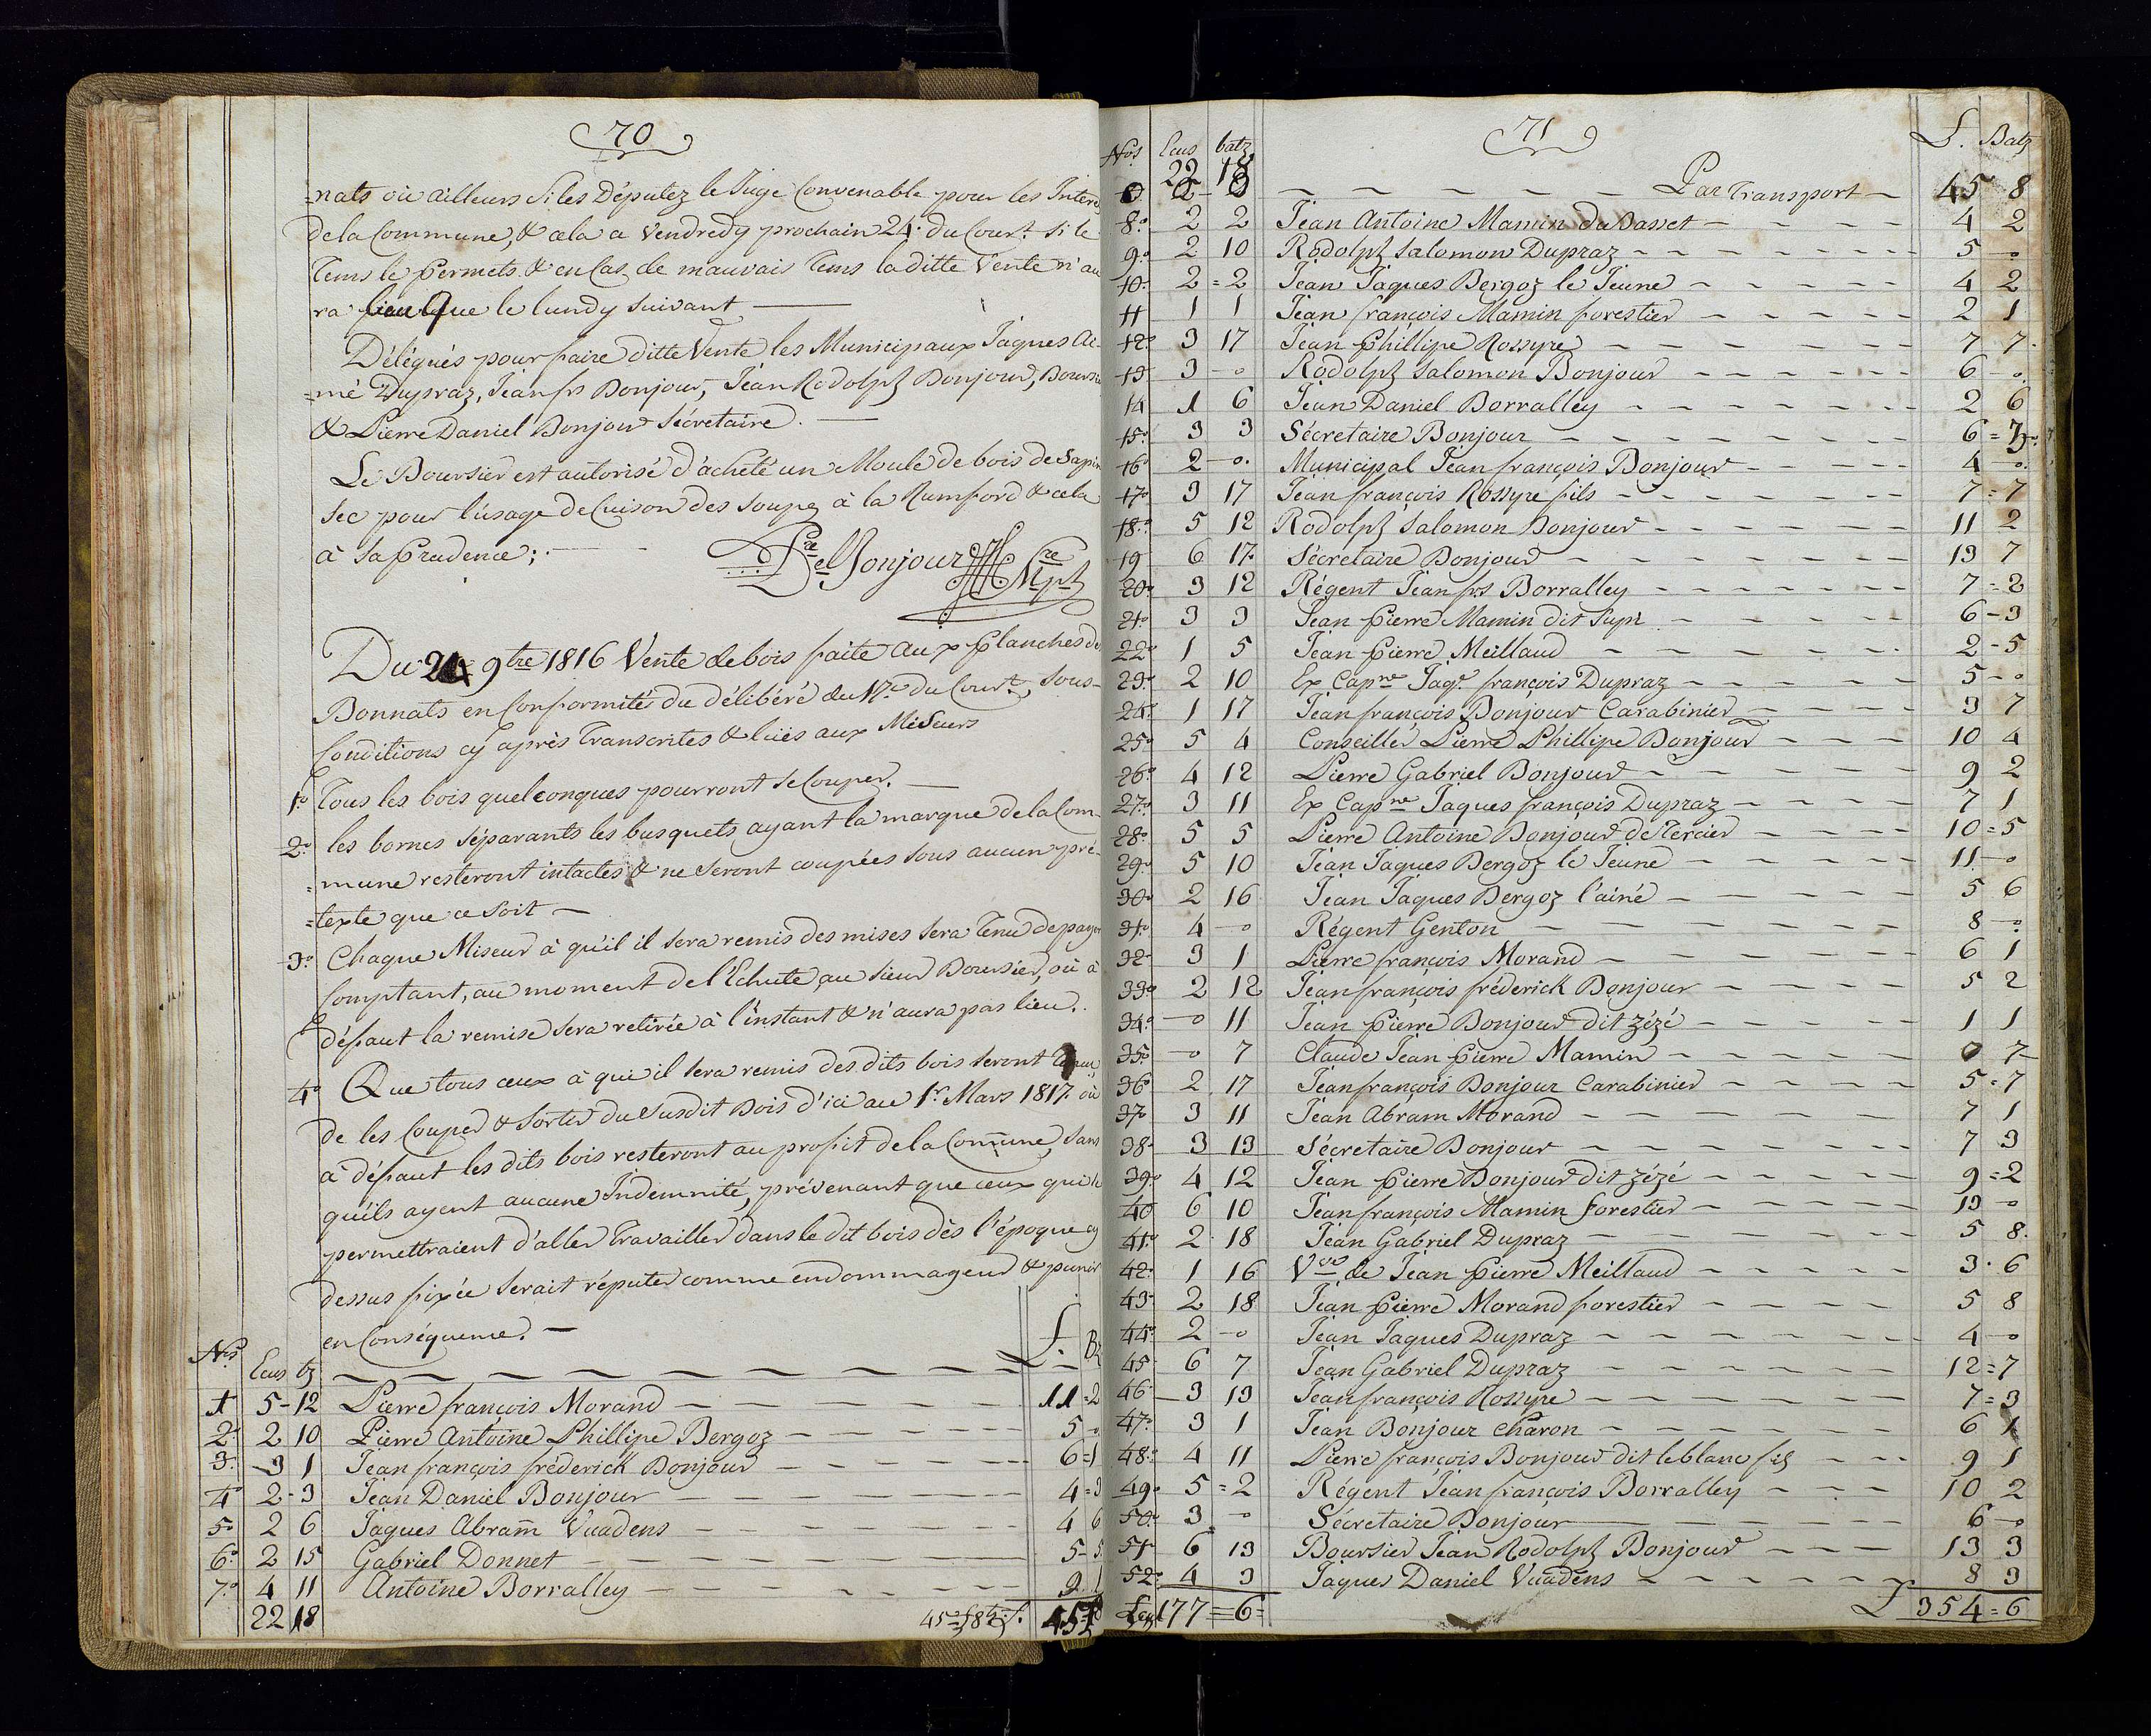 70
=nats où ailleurs si les Députez le Juge Convenable pour les Interes
de la Commune, & cela a Vendredy prochain 24. du Court. Si le
Tems le permets & en Cas de mauvais Tems la ditte Vente n'au
ra lieu que le lundy suivant
Délégués pour faire ditte Vente les Municipaux Jaques Ai-
=mé Dupraz, Jean fs Bonjour, Jean Rodolph Bonjour, Boursier
& Pierre Daniel Bonjour Sécretaire.
Le Boursier est autorisé d'acheté un Moule de bois de Sapin
sec pour l'usage de Cuison des soupes à la Rumford & cela
à sa prudence;
Pre Del Bonjour Sre Mpl
Du 24 9bre 1816 Vente de bois faite aux planches de
Bonnats en Conformités du délibéré du 17e du Court, sous
Conditions cy après Transcrites & lües aux Miseurs
1o Tous les bois quelconques pourront se Couper.
2o les bornes séparants les busquets ayant la marque de la Com-
=mune resteront intactes & ne seront coupées sous aucun pré-
=texte que ce soit
3o Chaque Miseur à qu'il il sera remis des mises sera Tenu de payer
Comptant, au moment de l'Echute au sieur Boursier, où à
défaut la remise sera retirée à l'instant & n'aura pas lieu.
4o Que tous ceux à qui il sera remis des dits bois seront Tenus
de les Couper & Sortir du susdit Bois d'ici au 1r Mars 1817. où
à défaut les dits bois resteront au profit de la Commune, sans
qu'ils ayent aucune Indemnité, prévenant que ceux qui se
permettraient d'aller Travailler dans le dit bois dès l'époque cy
dessus fixée serait réputer comme endommageur & punis
en Conséquence.
Nos Ecus bz £. Bz
1 5-12 Pierre françois Morand 11=2
2o 2 10 Pierre Antoine Phillipe Bergoz 5-0
3o 3 1 Jean françois fréderick Bonjour 6=1
4o 2-3 Jean Daniel Bonjour 4=3
5o 2 6 Jaques Abram Vuadens 4 6
6o 2 15 Gabriel Donnet 5-5
7o 4 11 Antoine Borralley 9 1
22 18 45 f 8 bz £. 45=8
71
Nos Ecus batz £. Batz
22 18 Par Transport 45 8
8o 2 2 Jean Antoine Mamin du Basset 4 2
9o 2 10 Rodolph Salomon Dupraz 5-0
10o 2=2 Jean Jaques Bergoz le Jeune 4 2
11 1 1 Jean françois Mamin forestier 2 1
12o 3 17 Jean Phillipe Rossyre 7 7
13 3-0 Rodolph Salomon Bonjour 6-0
14 1 6 Jean Daniel Borralley 2 6
15o 3 3 Sécretaire Bonjour 6=3
16o 2-0 Municipal Jean françois Bonjour 4-0
17o 3 17 Jean françois Rossyre fils 7=7
18o 5 12 Rodolph Salomon Bonjour 11 2
19 6 17 Sécretaire Bonjour 13 7
20o 3 12 Régent Jean frs Borralley 7=2
21o 3 3 Jean Pierre Mamin dit 6-3
22o 1 5 Jean Pierre Meillaud 2-5
23o 2 10 Ex Capne Jaqs françois Dupraz 5-0
24o 1 17 Jean françois Bonjour Carabinier 3 7
25o 5 4 Conseiller Pierre Phillipe Bonjour 10 4
26o 4 12 Pierre Gabriel Bonjour 9 2
27o 3 11 Ex Capne Jaques françois Dupraz 7 1
28o 5 5 Pierre Antoine Bonjour de Tercier 10=5
29o 5 10 Jean Jaques Bergoz le Jeune 11-0
30o 2 16 Jean Jaques Bergoz l'ainé 5 6
31o 4-0 Régent Genton 8-0
32 3 1 Pierre françois Morand 6 1
33o 2 12 Jean françois fréderick Bonjour 5 2
34o -0 11 Jean Pierre Bonjour dit zézé 1 1
35o -0 7 Claude Jean Pierre Mamin 0 7
36o 2 17 Jean françois Bonjour Carabinier 5=7
37o 3 11 Jean Abram Morand 7 1
38 3 13 Sécretaire Bonjour 7 3
39o 4 12 Jean Pierre Bonjour dit zézé 9=2
40 6 10 Jean françois Mamin forestier 13-0
41o 2 18 Jean Gabriel Dupraz 5 8
42o 1 16 Vve de Jean Pierre Meillaud 3 6
43 2 18 Jean Pierre Morand forestier 5 8
44o 2-0 Jean Jaques Dupraz 4-0
45 6 7 Jean Gabriel Dupraz 12=7
46 3 13 Jean françois Rossyre 7=3
47o 3 1 Jean Bonjour Charon 6 1
48o 4 11 Pierre françois Bonjour dit leblanc fils 9 1
49o 5=2 Régent Jean françois Borralley 10 2
50o 3-0 Sécretaire Bonjour 6-0
51 6 13 Boursier Jean Rodolph Bonjour 13 3
52o 4 3 Jaques Daniel Vuadens 8 3
177=6= £ 354=6